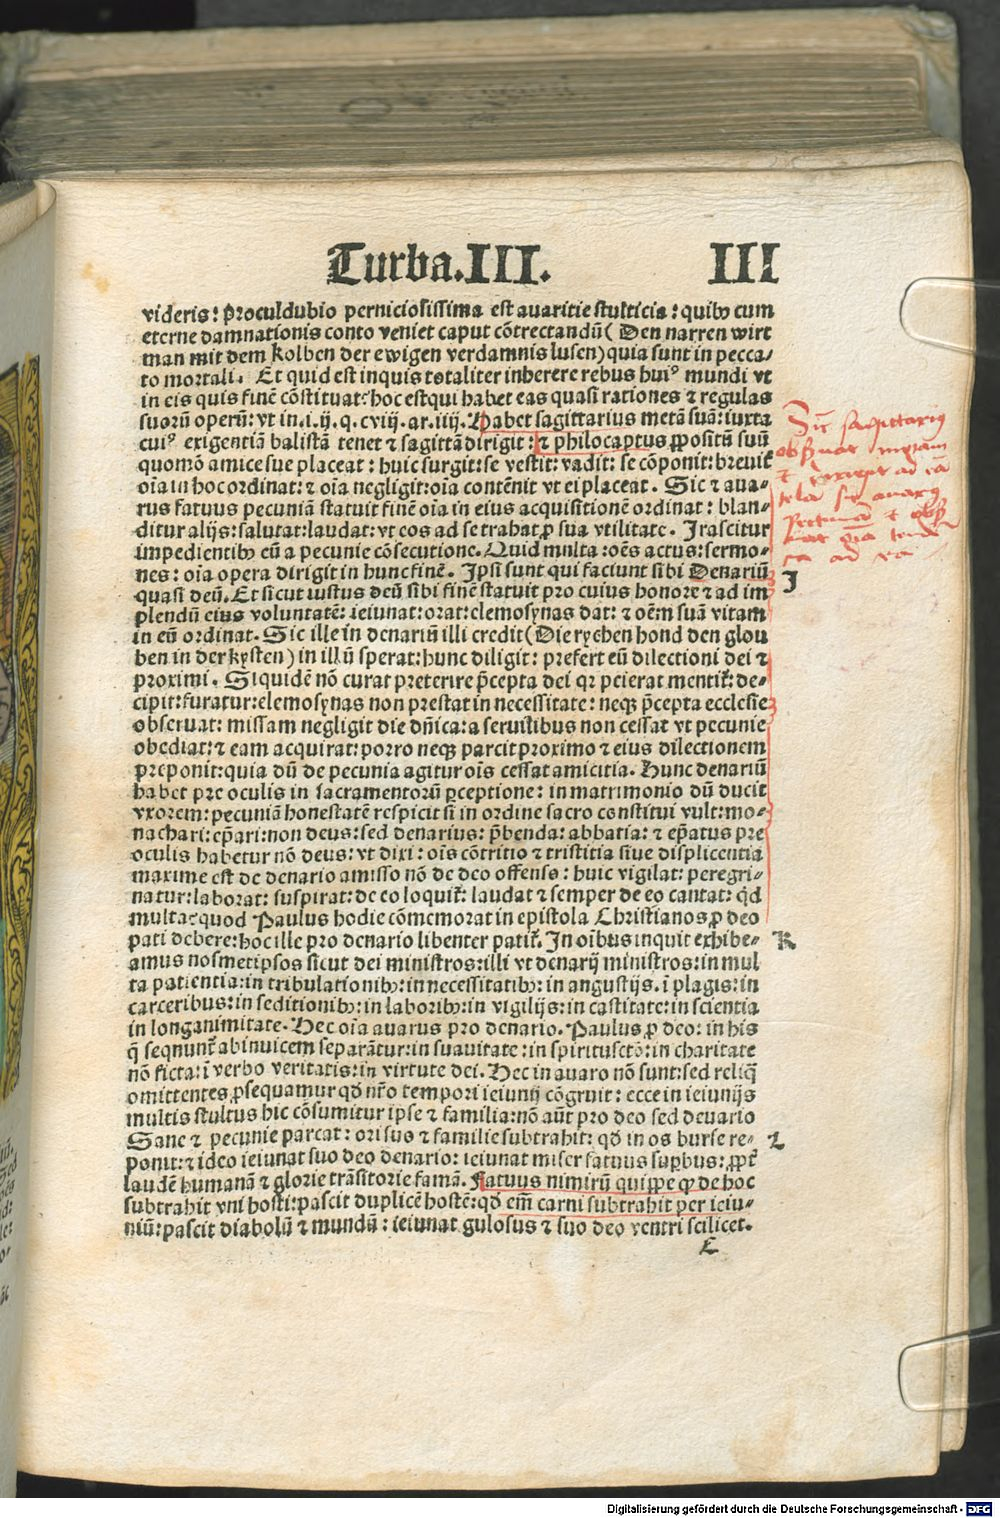 Turba.III. III
videris: Proculdubio perniciosissima est avaritie stulticia: quibꝰ cum
eterne damnationis conto veniet caput cōtrectandū (Den narren wirt
man mit dem kolben der ewigen verdamnis lusen) quia sunt in pecca⸗
to mortali. Et quid est inquis totaliter inherere rebus huiꝰ mundi vt
in eis quis finē cōstituat: hoc est qui habet eas quasi rationes ⁊ regulas
suorū operū: vt in .i. ij. q. cviij. ar. iiij. Habet sagittarius metā suā: iuxta
cuiꝰ exigentiā balistā tenet ⁊ sagittā dirigit: ⁊ philocaptus ꝓpositū suū
quomō amice sue placeat: huic surgit: se vestit: vadit: se cōponit: breuit̄
oīa in hoc ordinat: ⁊ oīa negligit: oīa contēnit vt ei placeat. Sic ⁊ aua⸗
rus fatuus pecuniā statuit finē oīa in eius acquisitionē ordinat: blan⸗
ditur alijs: salutat: laudat: vt eos ad se trahat ꝓ sua vtilitate. Irascitur
impedientibꝰ eū a pecunie cōsecutione. Quid multa: oēs actus: sermo⸗
nes: oīa opera dirigit in hunc finē. Ipsi sunt qui faciunt sibi Denariū
quasi deū. Et sicut iustus deū sibi finē statuit pro cuius honore ⁊ ad im
plendū eius voluntatē: ieiunat: orat: elemosynas dat: ⁊ oēm suā vitam
in eū ordinat. Sic ille in denariū illi credit (Die rychen hond den glou
ben in der kysten) in illū sperat: hunc diligit: prefert eū dilectioni dei ⁊
proximi. Siquidē nō curat preterire p̄cepta dei qꝛ peierat mentit̄: de⸗
cipit: furatur: elemosynas non prestat in necessitate: neqꝫ p̄cepta ecclesie
obseruat: missam negligit die dn̄ica: a seruilibus non cessat vt pecunie
obediat: ⁊ eam acquirat: porro neqꝫ parcit proximo ⁊ eius dilectionem
preponit: quia dū de pecunia agitur oīs cessat amicitia. Hunc denariū
habet pre oculis in sacramentorū ꝑceptione: in matrimonio dū ducit
vxorem: pecuniā honestatē respicit si in ordine sacro constitui vult: mo⸗
nachari: ep̄ari: non deus: sed denarius: p̄benda: abbatia: ⁊ ep̄atus pre
oculis habetur nō deus: vt dixi: oīs cōtritio ⁊ tristitia siue displicentia
maxime est de denario amisso nō de deo offenso: huic vigilat: peregri⸗
natur: laborat: suspirat: de eo loquit̄: laudat ⁊ semper de eo cantat: qd̄
multa: quod Paulus hodie cōmemorat in epistola Christianos ꝓ deo
pati debere: hoc ille pro denario libenter patit̄. In oībus inquit exhibe⸗
amus nosmetipsos sicut dei ministros: illi vt denarij ministros: in mul
ta patientia: in tribulationibꝰ: in necessitatibꝰ: in angustijs. ī plagis: in
carceribus: in seditionibꝰ: in laboribꝰ: in vigilijs: in castitate: in scientia
in longanimitate. Hec oīa auarus pro denario. Paulus ꝓ deo: in his
q̄ seqnunt̄ abinuicem separātur: in suauitate: in spiritusctō: in charitate
nō ficta: ī verbo veritatis: in virtute dei. Hec in auaro nō sunt: sed reliq̄
omittentes ꝓsequamur qd̄ nr̄o tempori ieiunij cōgruit: ecce in ieiunijs
multis stultus hic cōsumitur ipse ⁊ familia: nō aūt pro deo sed deuario
Sane ⁊ pecunie parcat: ori suo ⁊ familie subtrahit: qd̄ in os burse re⸗
ponit: ⁊ ideo ieiunat suo deo denario: ieiunat miser fatuus suꝑbus: ꝓpt̄
laudē humanā ⁊ glorie trāsitorie famā. Fatuus nimirū quippe qꝰ de hoc
subtrahit vni hosti: pascit duplicē hostē: qd̄ em̄ carni subtrahit per ieiu⸗
niū: pascit diabolū ⁊ mundū: ieiunat gulosus ⁊ suo deo ventri scilicet.
c
Sic sagittarius
obseruat metam
⁊ dirigit ad eā
tela sic auarus
pecuniā ⁊
oīa
ad eā
I
K
L
Digitalisierung gefördert durch die Deutsche Forschungsgemeinschaft - DFG